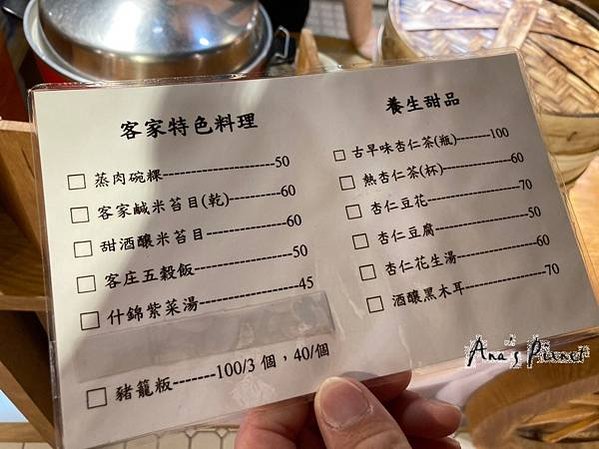 客家特色料理
□ 蒸肉碗粿----------------------50
□ 客家鹹米苔目(乾)----------60
□ 甜酒釀米苔目----------------60
□ 客庄五穀飯--------------------50
□ 什錦紫菜湯--------------------45
□ 豬籠粄--------100/3 個，40/個
養生甜品
□ 古早味杏仁茶(瓶)--------100
□ 熱杏仁茶(杯)----------------60
□ 杏仁豆花----------------------70
□ 杏仁豆腐----------------------50
□ 杏仁花生湯-------------------60
□ 酒釀黑木耳-------------------70
Ana's Planet